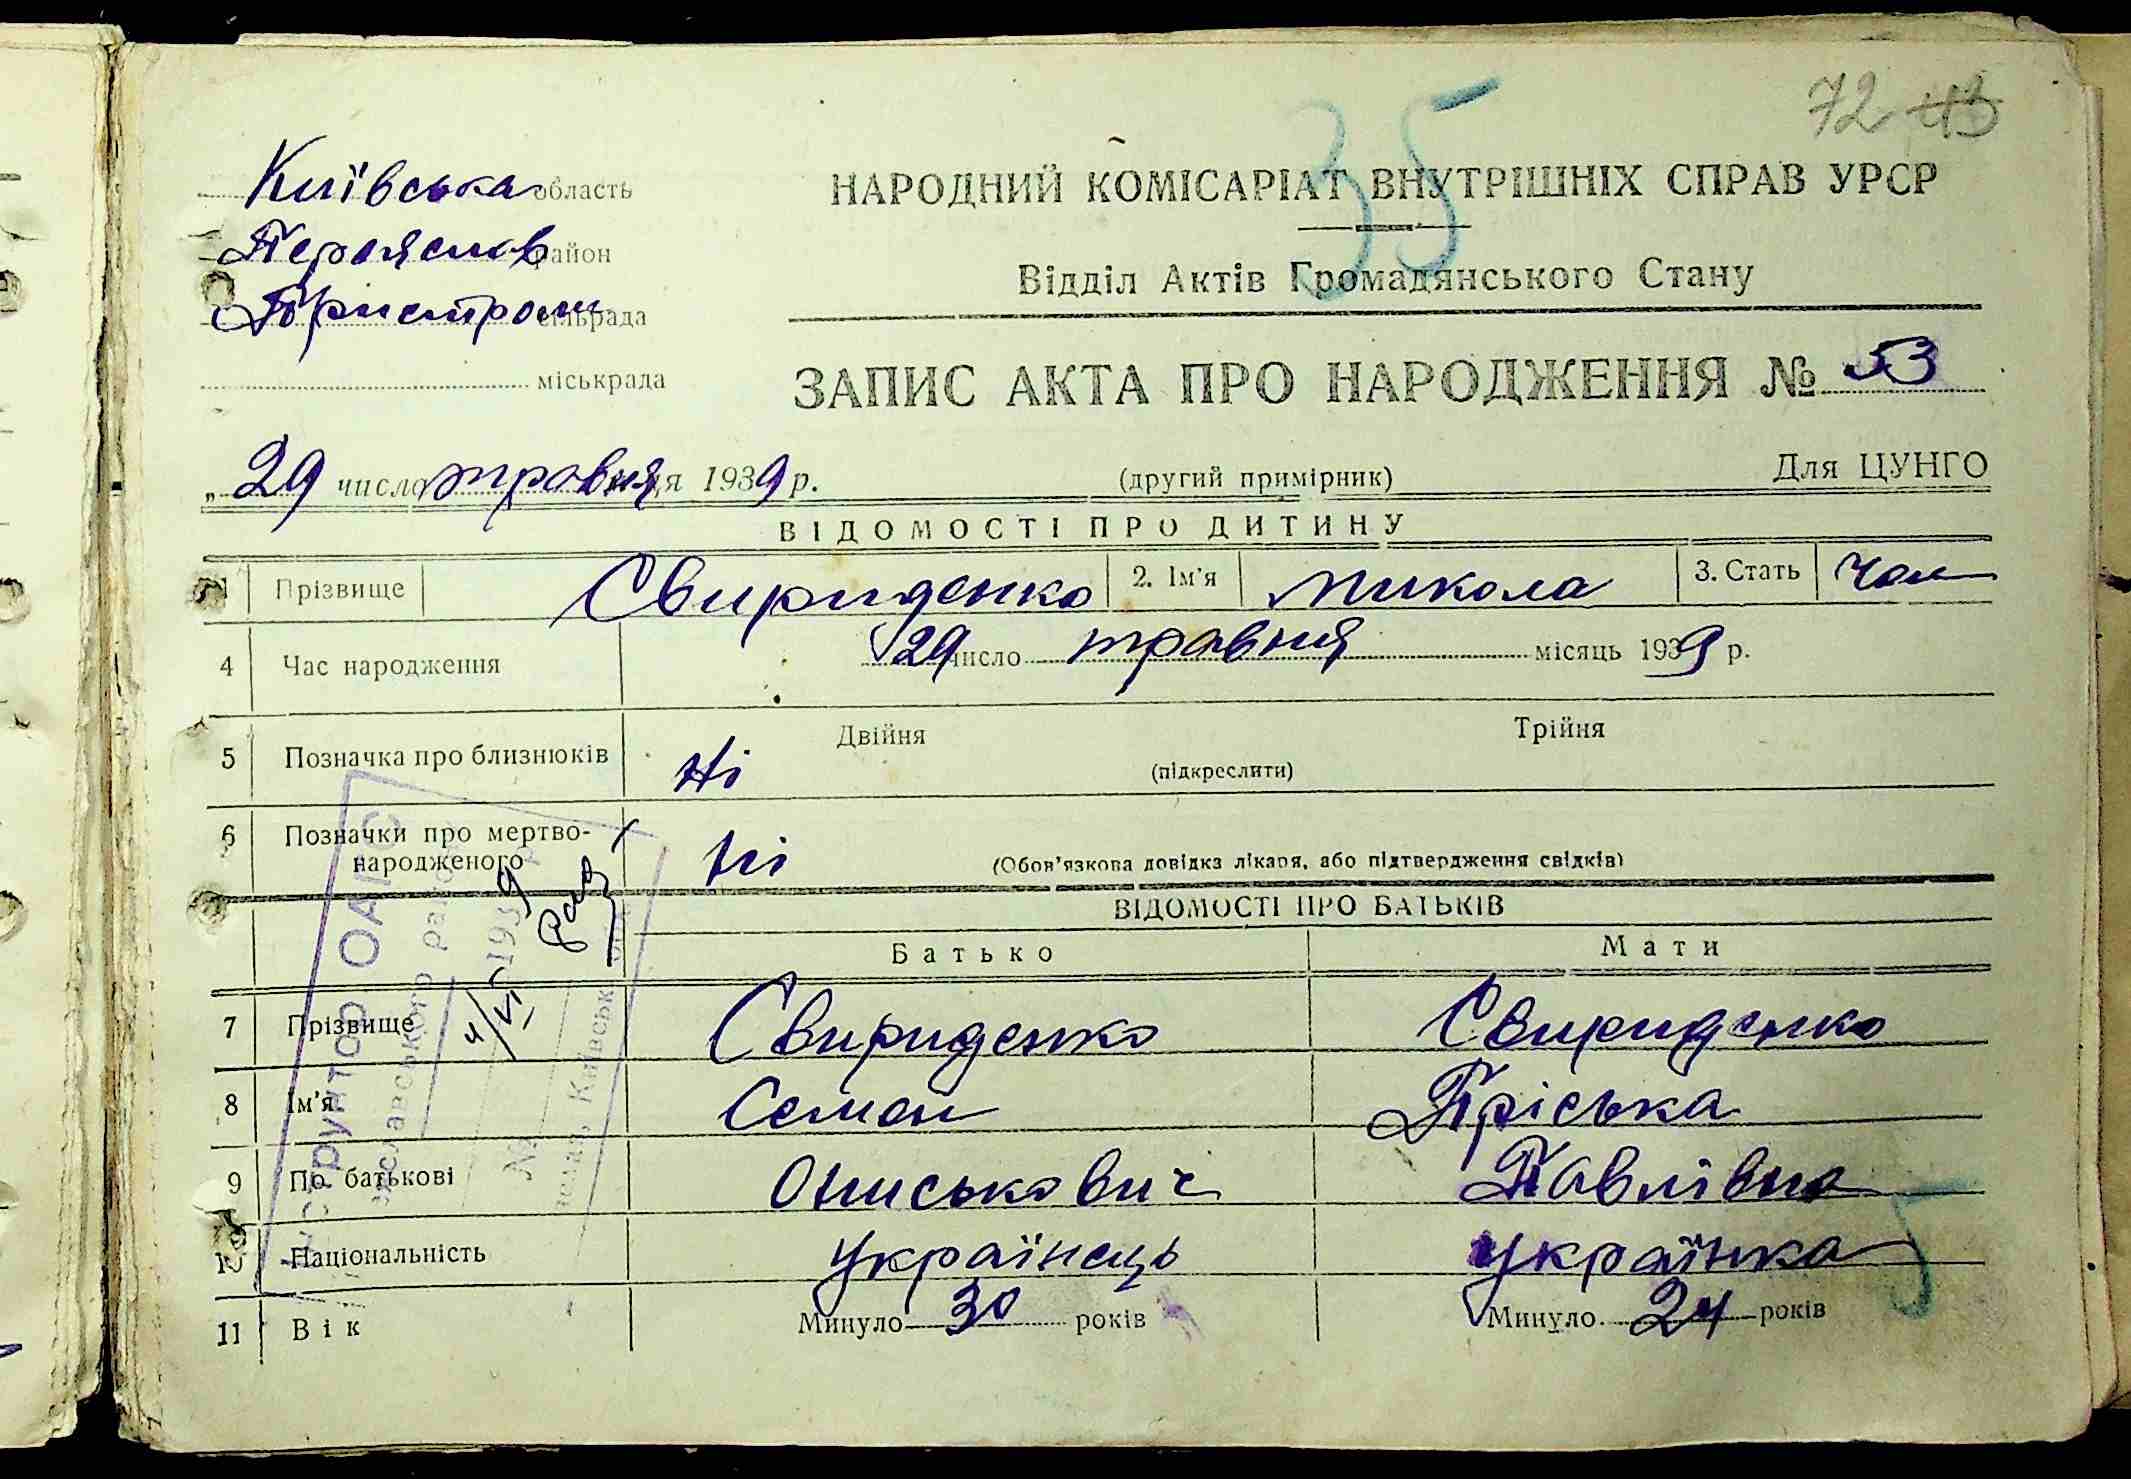 72 43
35
Київська область
НАРОДНИЙ КОМІСАРІАТ ВНУТРІШНІХ СПРАВ УРСР
Переяслав район
Відділ Актів Громадянського Стану
Пристроми сільрада
міськрада
ЗАПИС АКТА ПРО НАРОДЖЕННЯ № 53
„ 29 число травня 1939 р. (другий примірник) Для ЦУНГО
ВІДОМОСТІ ПРО ДИТИНУ
1 Прізвище Свириденко 2. Ім'я Микола 3. Стать чол
4 Час народження 29 число травня місяць 1939 р.
5 Позначка про близнюків Ні Двійня Трійня
(підкреслити)
6 Позначки про мертво-
народженого Ні (Обов'язкова довідка лікаря, або підтвердження свідків)
ВІДОМОСТІ ПРО БАТЬКІВ
Батько Мати
7 Прізвище Свириденко Свириденко
8 Ім'я Семен Пріська
9 По батьковіОниськович Павлівна
10 Національність Українець Українка
11 Вік Минуло 30 років Минуло 24 років
ОАГС
4/VI 1939
№
5